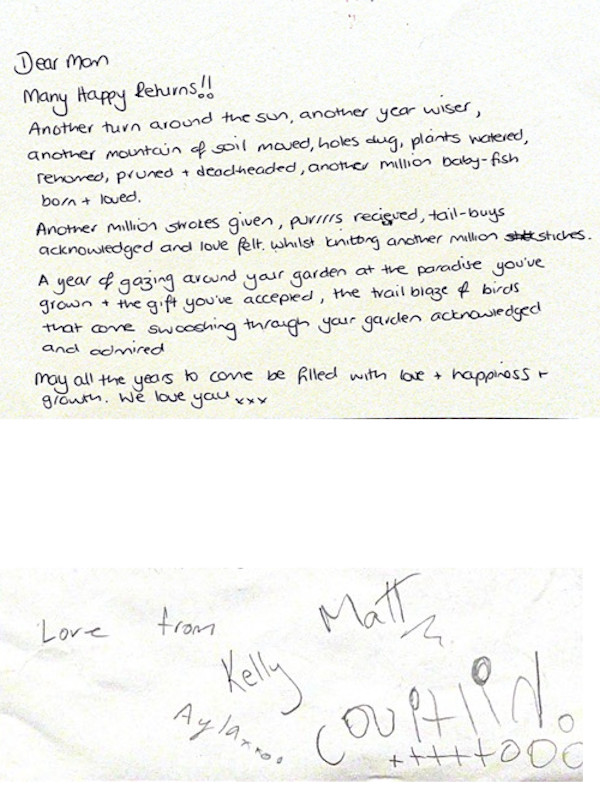 Dear Mom
Many Happy Returns!!
Another turn around the sun, another year wiser,
another mountain of soil moved, holes dug, plants watered,
rehomed, pruned + deadheaded, another million baby-fish
born + loved.
Another million strokes given, purrrrs recieved, tail-buys
acknowledged and love felt. whilst knitting another million stiches.
A year of gazing around your garden at the paradise you've
grown + the gift you've accepted, the trail blaze of birds
that come swooshing through your garden acknowledged
and admired
May all the years to come be filled with love + happiness +
growth. We love you xxx
Love from Matt
Kelly
Ayla xxoo
Couitlin.
+++++OOOO